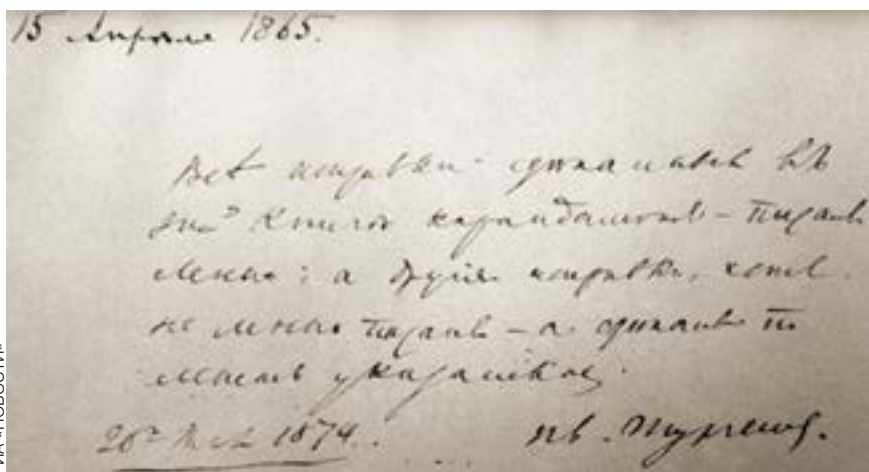 15 Апреля 1865.
Всѣ поправки сдѣланныя въ
этой книгѣ карандашомъ – писаны
мною; а другія поправки, хотя
не мною писаны – а сдѣланы по
моимъ указаніямъ.
1874.
Ив. Тургеневъ.
ИА «НОВОСТИ»